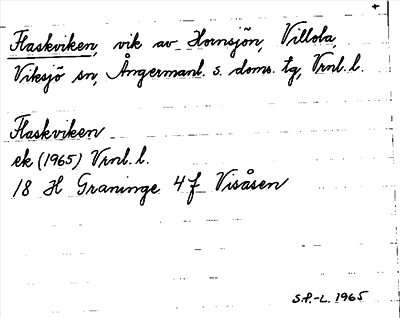 +
Flaskviken, vik av Hornsjön, Villola,
Viksjö sn, Ångermanl. s. doms. tg, Vrnl. l.
Flaskviken
ek (1965) Vrnl. l.
18 H Graninge 4 f Visåsen
S.P.-L. 1965